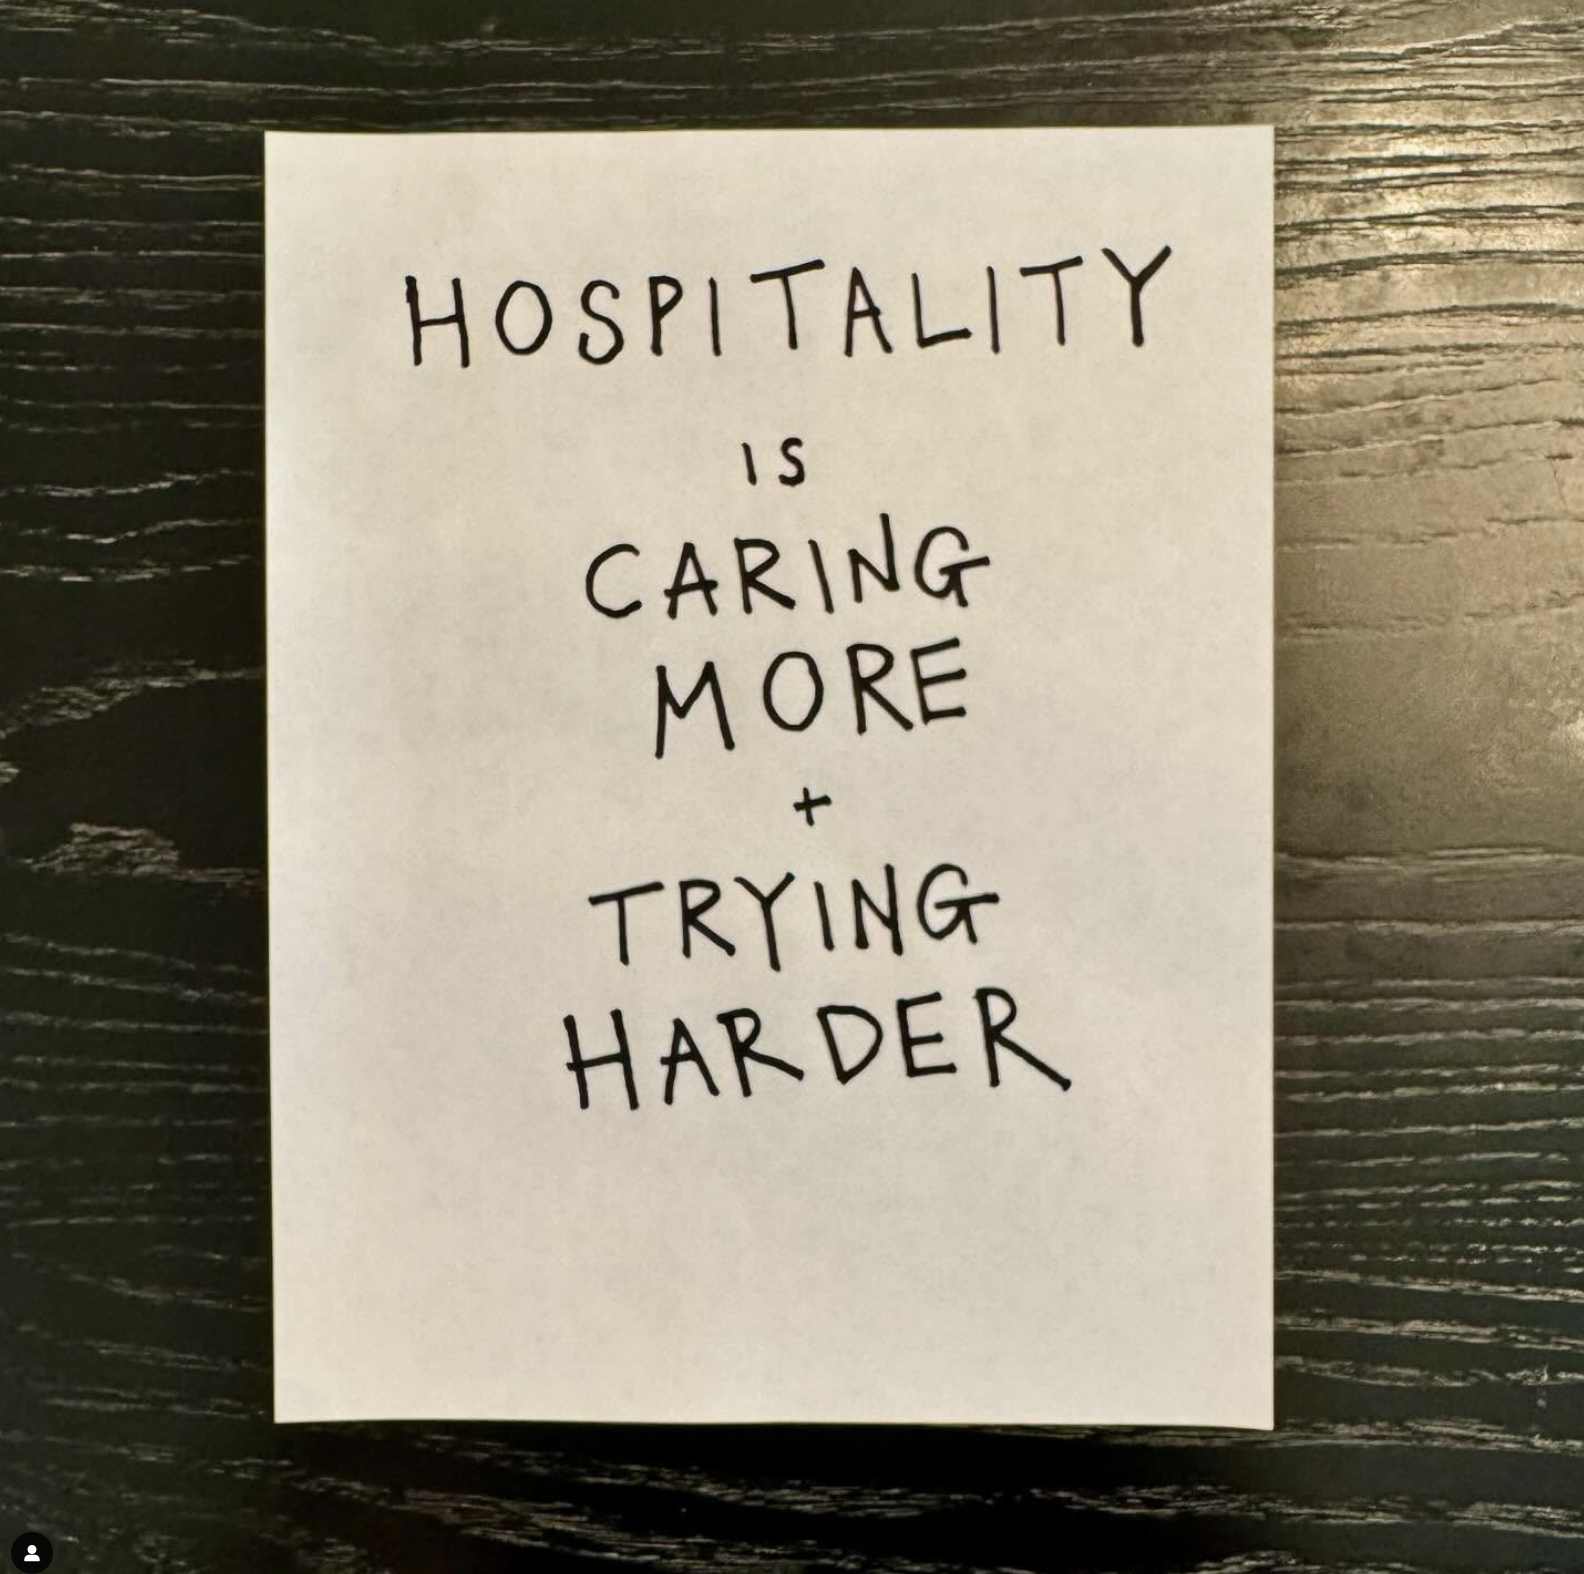 HOSPITALITY
IS
CARING
MORE
+
TRYING
HARDER